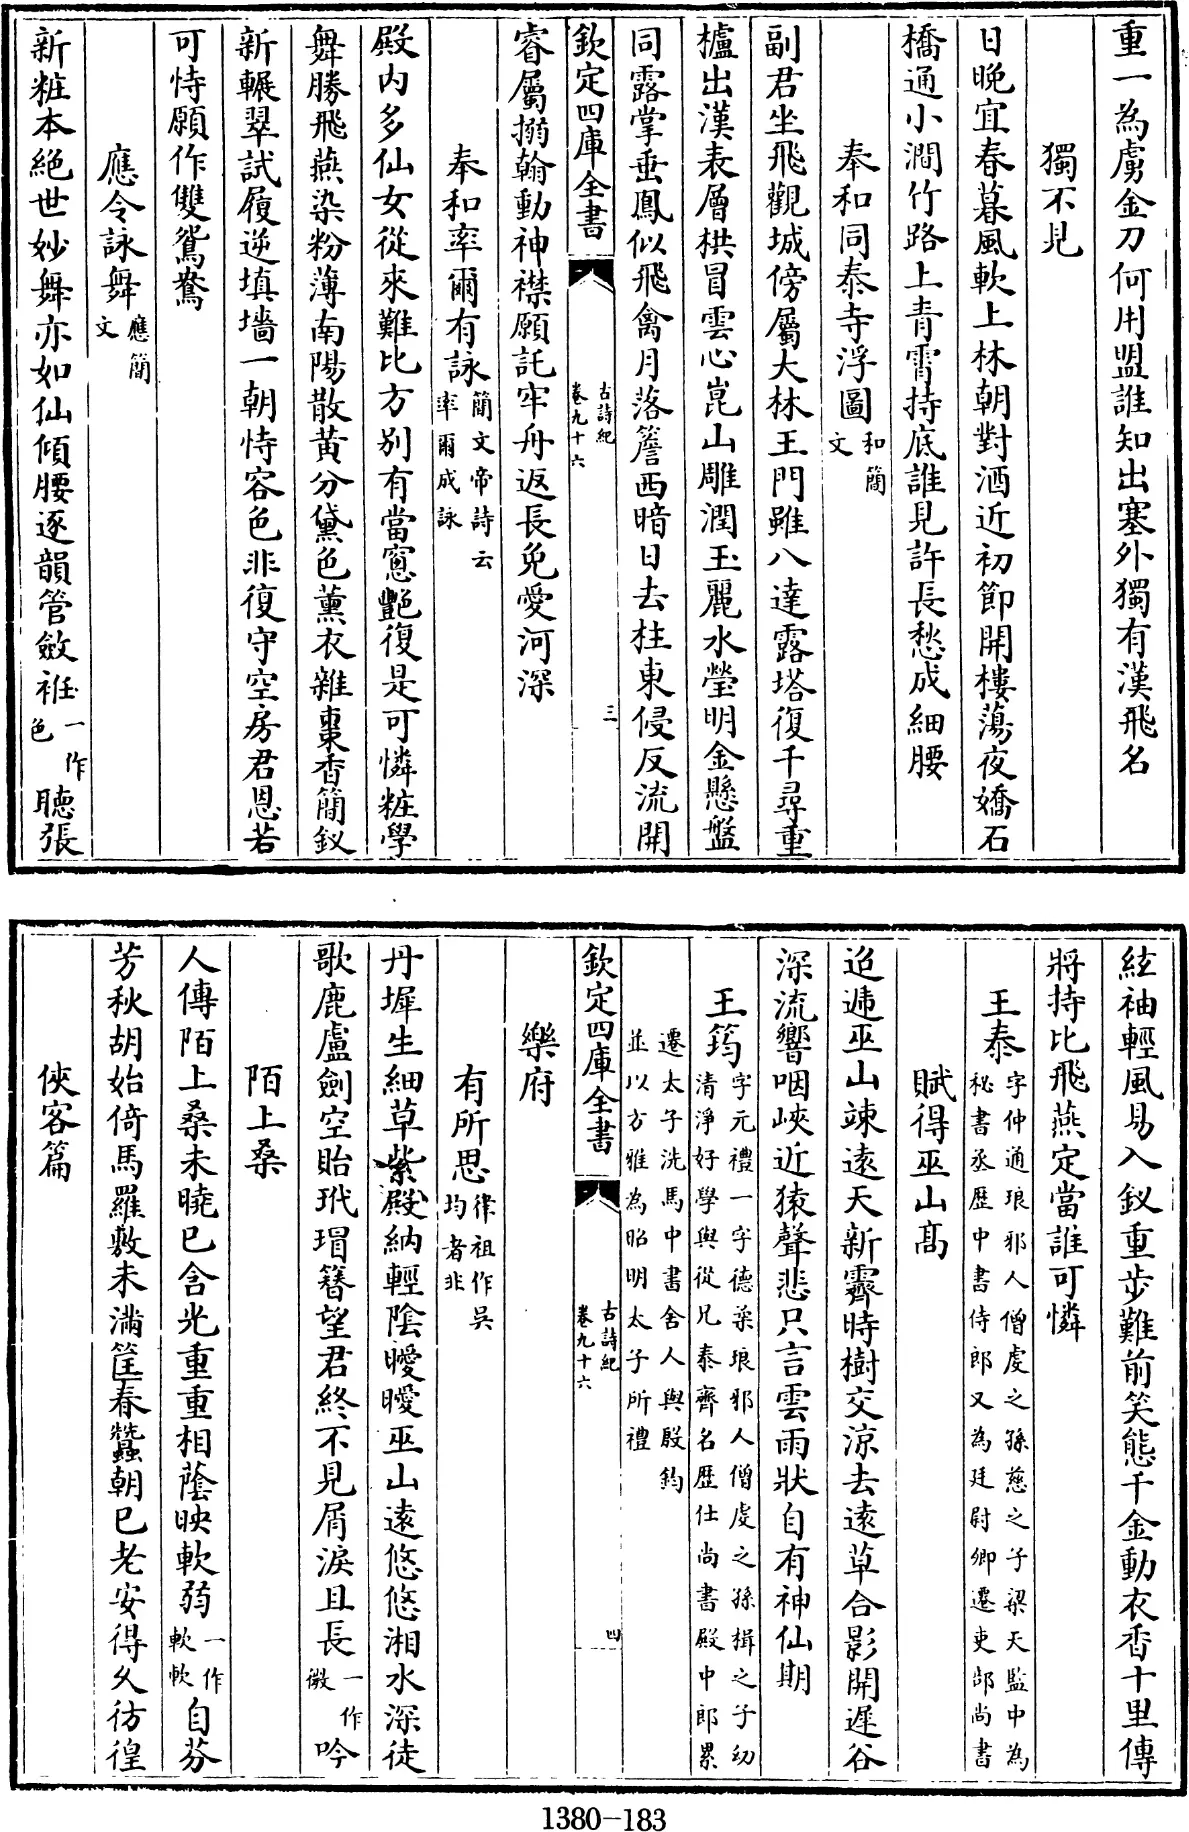 重一為虜金刀何用盟誰知出塞外獨有漢飛名
獨不見
日晚宜春暮風軟上林朝對酒近初節開樓蕩夜嬌石
橋通小澗竹路上青霄持底誰見許長愁成細腰
奉和同泰寺浮圖和簡文
副君坐飛觀城傍屬大林王門雖八達露塔復千尋重
櫨出漢表層栱冒雲心崑山雕潤玉麗水瑩明金懸盤
同露掌垂鳳似飛禽月落簷西暗日去柱東侵反流開
欽定四庫全書 古詩紀卷九十六 三
睿屬搦翰動神襟願託牢舟返長免愛河深
奉和率爾有詠簡文帝詩云率爾成詠
殿內多仙女從來難比方別有當窻艷復是可憐粧學
舞勝飛燕染粉薄南陽散黃分黛色薰衣雜棗香簡釵
新輾翠試履逆填墻一朝恃容色非復守空房君恩若
可恃願作雙鴛鴦
應令詠舞應簡文
新粧本絕世妙舞亦如仙傾腰逐韻管斂袵一作色聽張
絃袖輕風易入釵重步難前笑態千金動衣香十里傳
將持比飛燕定當誰可憐
王泰字仲通琅邪人僧虔之孫慈之子梁天監中為秘書丞歷中書侍郎又為廷尉卿遷吏部尚書
賦得巫山高
迢遞巫山竦遠天新霽時樹交涼去遠草合影開遲谷
深流響咽峽近猿聲悲只言雲雨狀自有神仙期
王筠字元禮一字德柔琅邪人僧虔之孫楫之子幼清淨好學與從兄泰齊名歷仕尚書殿中郎累
遷太子洗馬中書舍人與殷鈞並以方雅為昭明太子所禮
欽定四庫全書 古詩紀卷九十六 四
樂府
有所思律祖作吳均者非
丹墀生細草紫殿納輕陰曖曖巫山遠悠悠湘水深徒
歌鹿盧劍空貽玳瑁簪望君終不見屑淚且長一作微吟
陌上桑
人傳陌上桑未曉已含光重重相蔭映軟弱一作軟軟自芬
芳秋胡始倚馬羅敷未滿筐春蠶朝已老安得久彷徨
俠客篇
1380-183